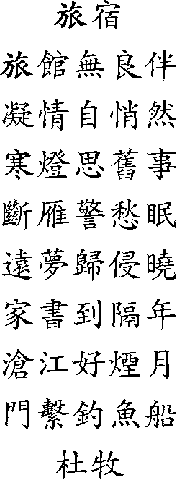 旅宿
旅館無良伴
凝情自悄然
寒燈思舊事
斷雁警愁眠
遠夢歸侵曉
家書到隔年
滄江好煙月
門繫釣魚船
杜牧